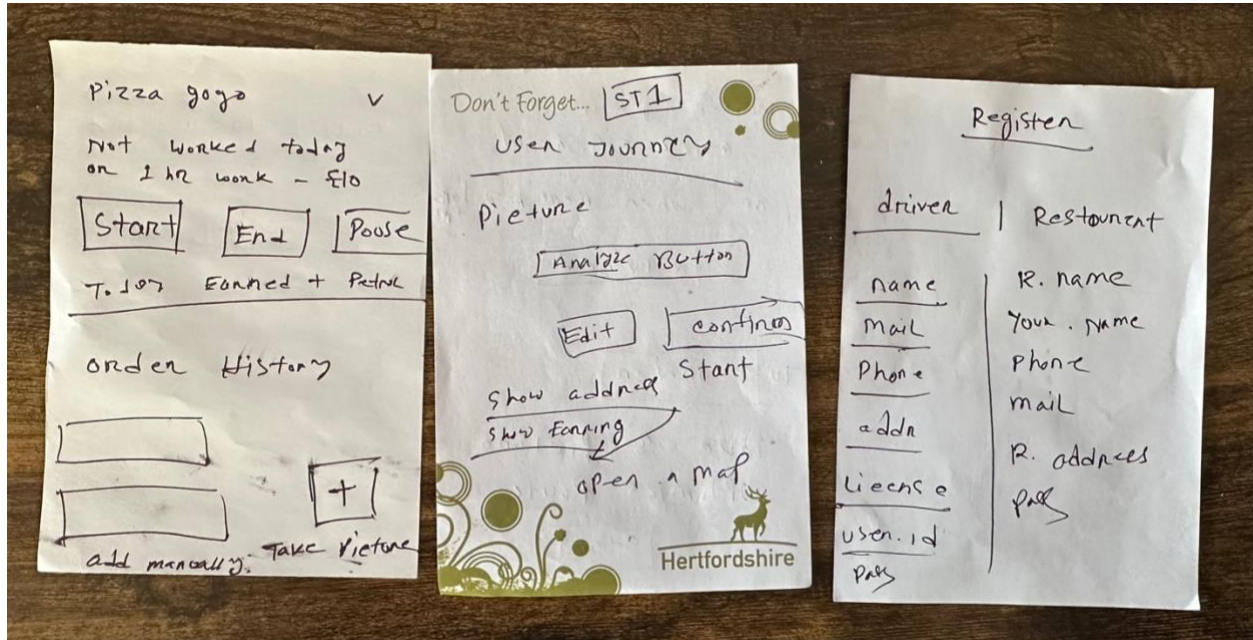 Pizza gogo
Not worked today
on 1 hr work - £10
Start
End
Poose
Earned + Petrol
Order History
+
add manually.
Take Picture
Don't Forget...
ST1
User Journey
Picture
Analyze Button
Edit
Confirm
Start
Show address
Show Earning
open a map
Hertfordshire
Register
driver | Restaurent
name
mail
Phone
addr
License
user.id
Pass
R. name
Your. Name
Phone
mail
R. address
pass